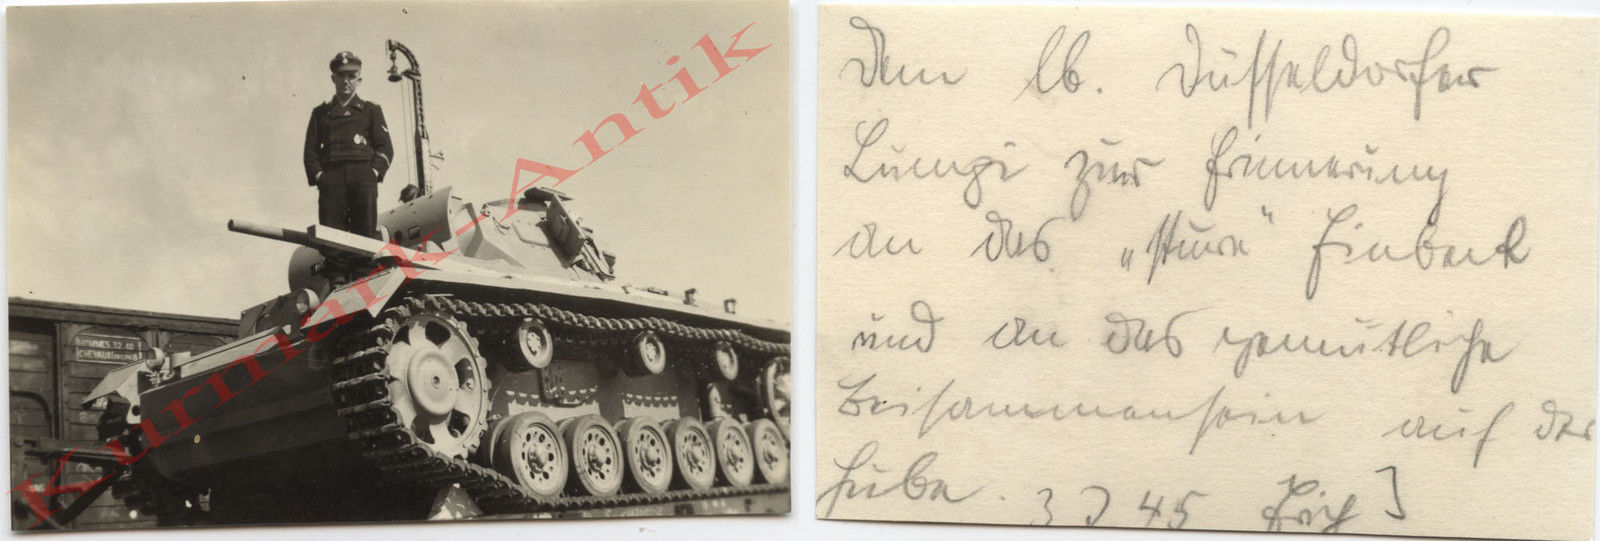 Kurmark-Antik
HOMMES 32.40
CHEVAUX
Dem lb. Düsseldorfer
Lumpi zur Erinnerung
an das „sture“ Einbeck
und an das gemütliche
Beisammensein auf der
Hube. 3 45 Erich